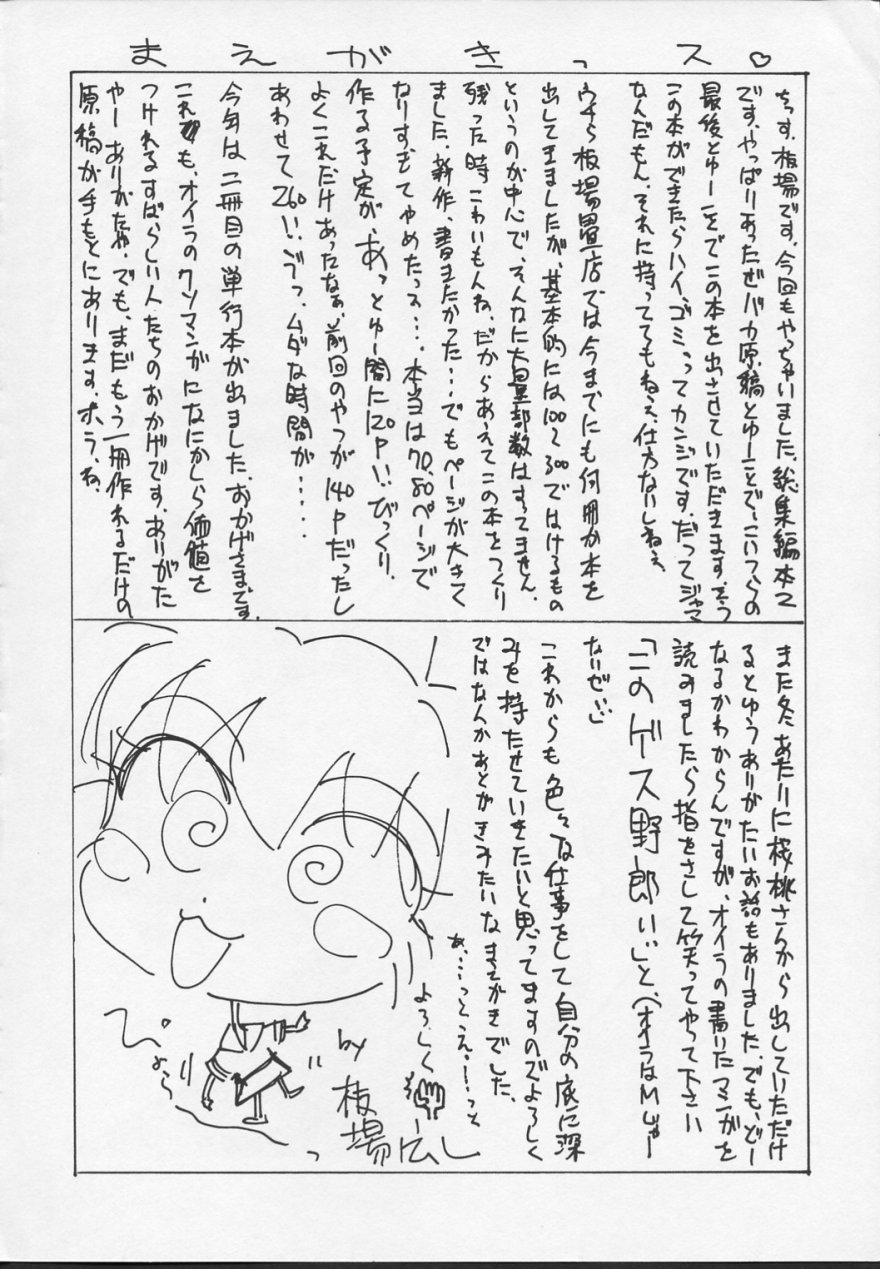 まえがきっス♡
ちっす、板場です。今回もやっちゃいました、総集編本マ
です、やっぱりあったぜバカ原稿とゆーことで、こいつらの
最後とゆーことでこの本を出させていただきます。そう
この本ができたらハイ、ゴミってカンジです。だってジャマ
なんだもん、それに持っててもねぇ、仕方ないしねぇ
うちら板場畳店では今までにも何冊か本を
出してきましたが、基本的には100〜300ではけるもの
というのが中心で、そんなに大量部数はすってません、
残った時こわいもんね、だからあえてこの本をつくり
ました、新作、書きたかった…でもページが大きく
なりすぎてやめたっス…、本当は70,80ページで
作る予定が、あっとゆー間に120P!!、びっくり、
よくこれだけあったなぁ、前回のやつが140Pだったし
あわせて260!!、ゔっ、ムダな時間が‥‥‥
今年は二冊目の単行本が出ました、おかげさまです。
これも、オイラのクソマンガになにかしら価値を
つけれるすばらしい人たちのおかげです、ありがた
やーありがたや、でも、まだもう一冊作れるだけの
原稿が手もとにあります、ホラ、ね、
また冬あたりに桜桃さんから出していただけ
るとゆうありがたいお話もありました、でも、どー
なるかわからんですが、オイラの書いたマンガを
読みましたら指をさして笑ってやって下さい
「このゲス野郎!!」と、(オイラはMじゃー
ないぜい)
これからも色々な仕事をして自分の底に深
みを持たせていきたいと思ってますのでよろしく
ではなんかあとがきみたいなまえがきでした。
あ、…っとえー!っと
よろしく
by 板場広し
っ